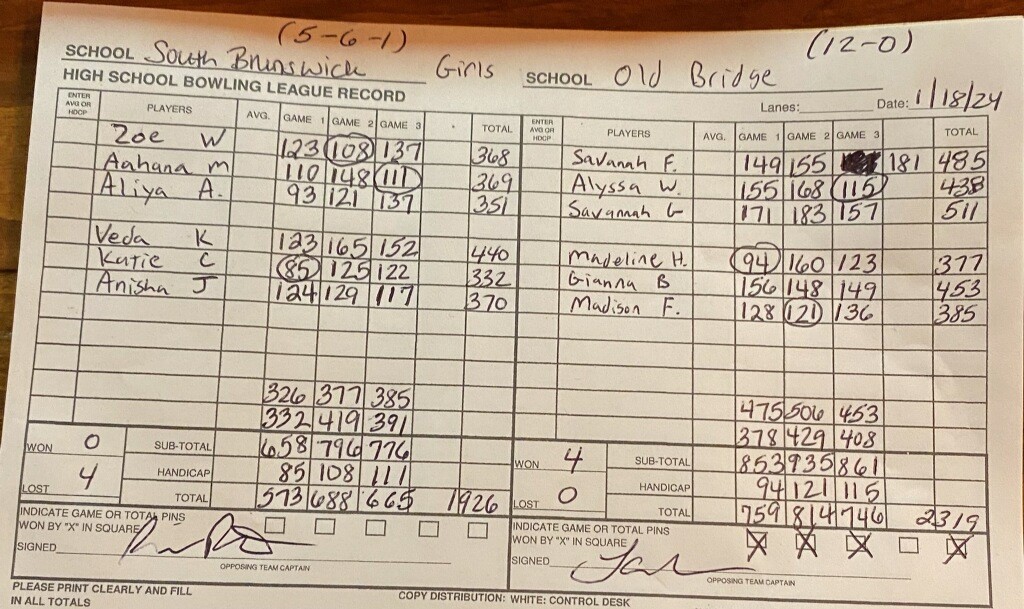 (5-6-1) (12-0)
SCHOOL South Brunswick Girls SCHOOL Old Bridge
HIGH SCHOOL BOWLING LEAGUE RECORD Lanes: Date: 1/18/24
ENTER AVG OR HDCP PLAYERS AVG. GAME 1 GAME 2 GAME 3 TOTAL ENTER AVG OR HDCP PLAYERS AVG. GAME 1 GAME 2 GAME 3 TOTAL
Zoe W 123 108 137 368 Savanah F. 149 155 181 485
Aahana M 110 148 111 369 Alyssa W. 155 168 115 438
Aliya A. 93 121 137 351 Savannah G 171 183 157 511
Veda K 123 165 152 440 Madeline H. 94 160 123 377
Katie C 85 125 122 332 Gianna B 156 148 149 453
Anisha J 124 129 117 370 Madison F. 128 121 136 385
326 377 385 475 506 453
332 419 391 378 429 408
WON 0 SUB-TOTAL 658 796 776 WON 4 SUB-TOTAL 853 935 861
HANDICAP 85 108 111 HANDICAP 94 121 115
LOST 4 TOTAL 573 688 665 1926 LOST 0 TOTAL 759 814 746 2319
INDICATE GAME OR TOTAL PINS INDICATE GAME OR TOTAL PINS
WON BY "X" IN SQUARE WON BY "X" IN SQUARE X X X X
SIGNED SIGNED
OPPOSING TEAM CAPTAIN OPPOSING TEAM CAPTAIN
PLEASE PRINT CLEARLY AND FILL
IN ALL TOTALS COPY DISTRIBUTION: WHITE: CONTROL DESK